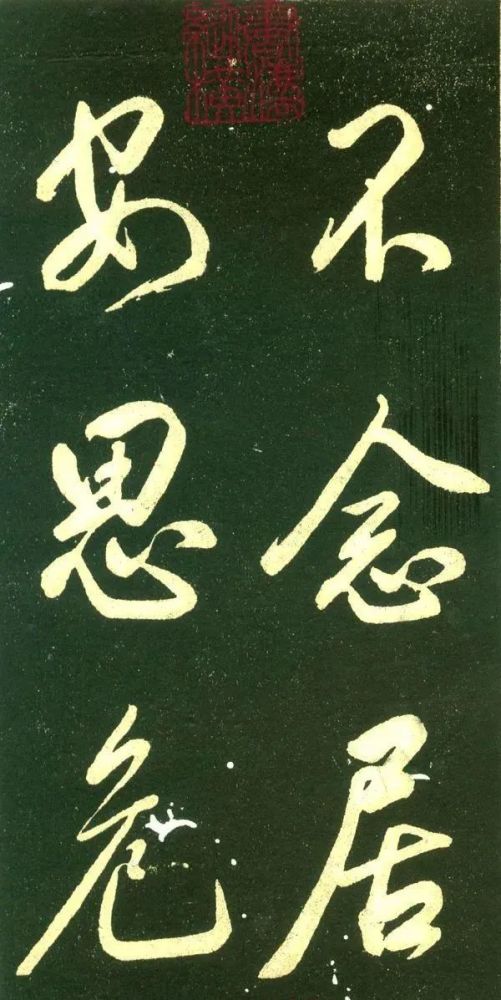 不念居
安思危